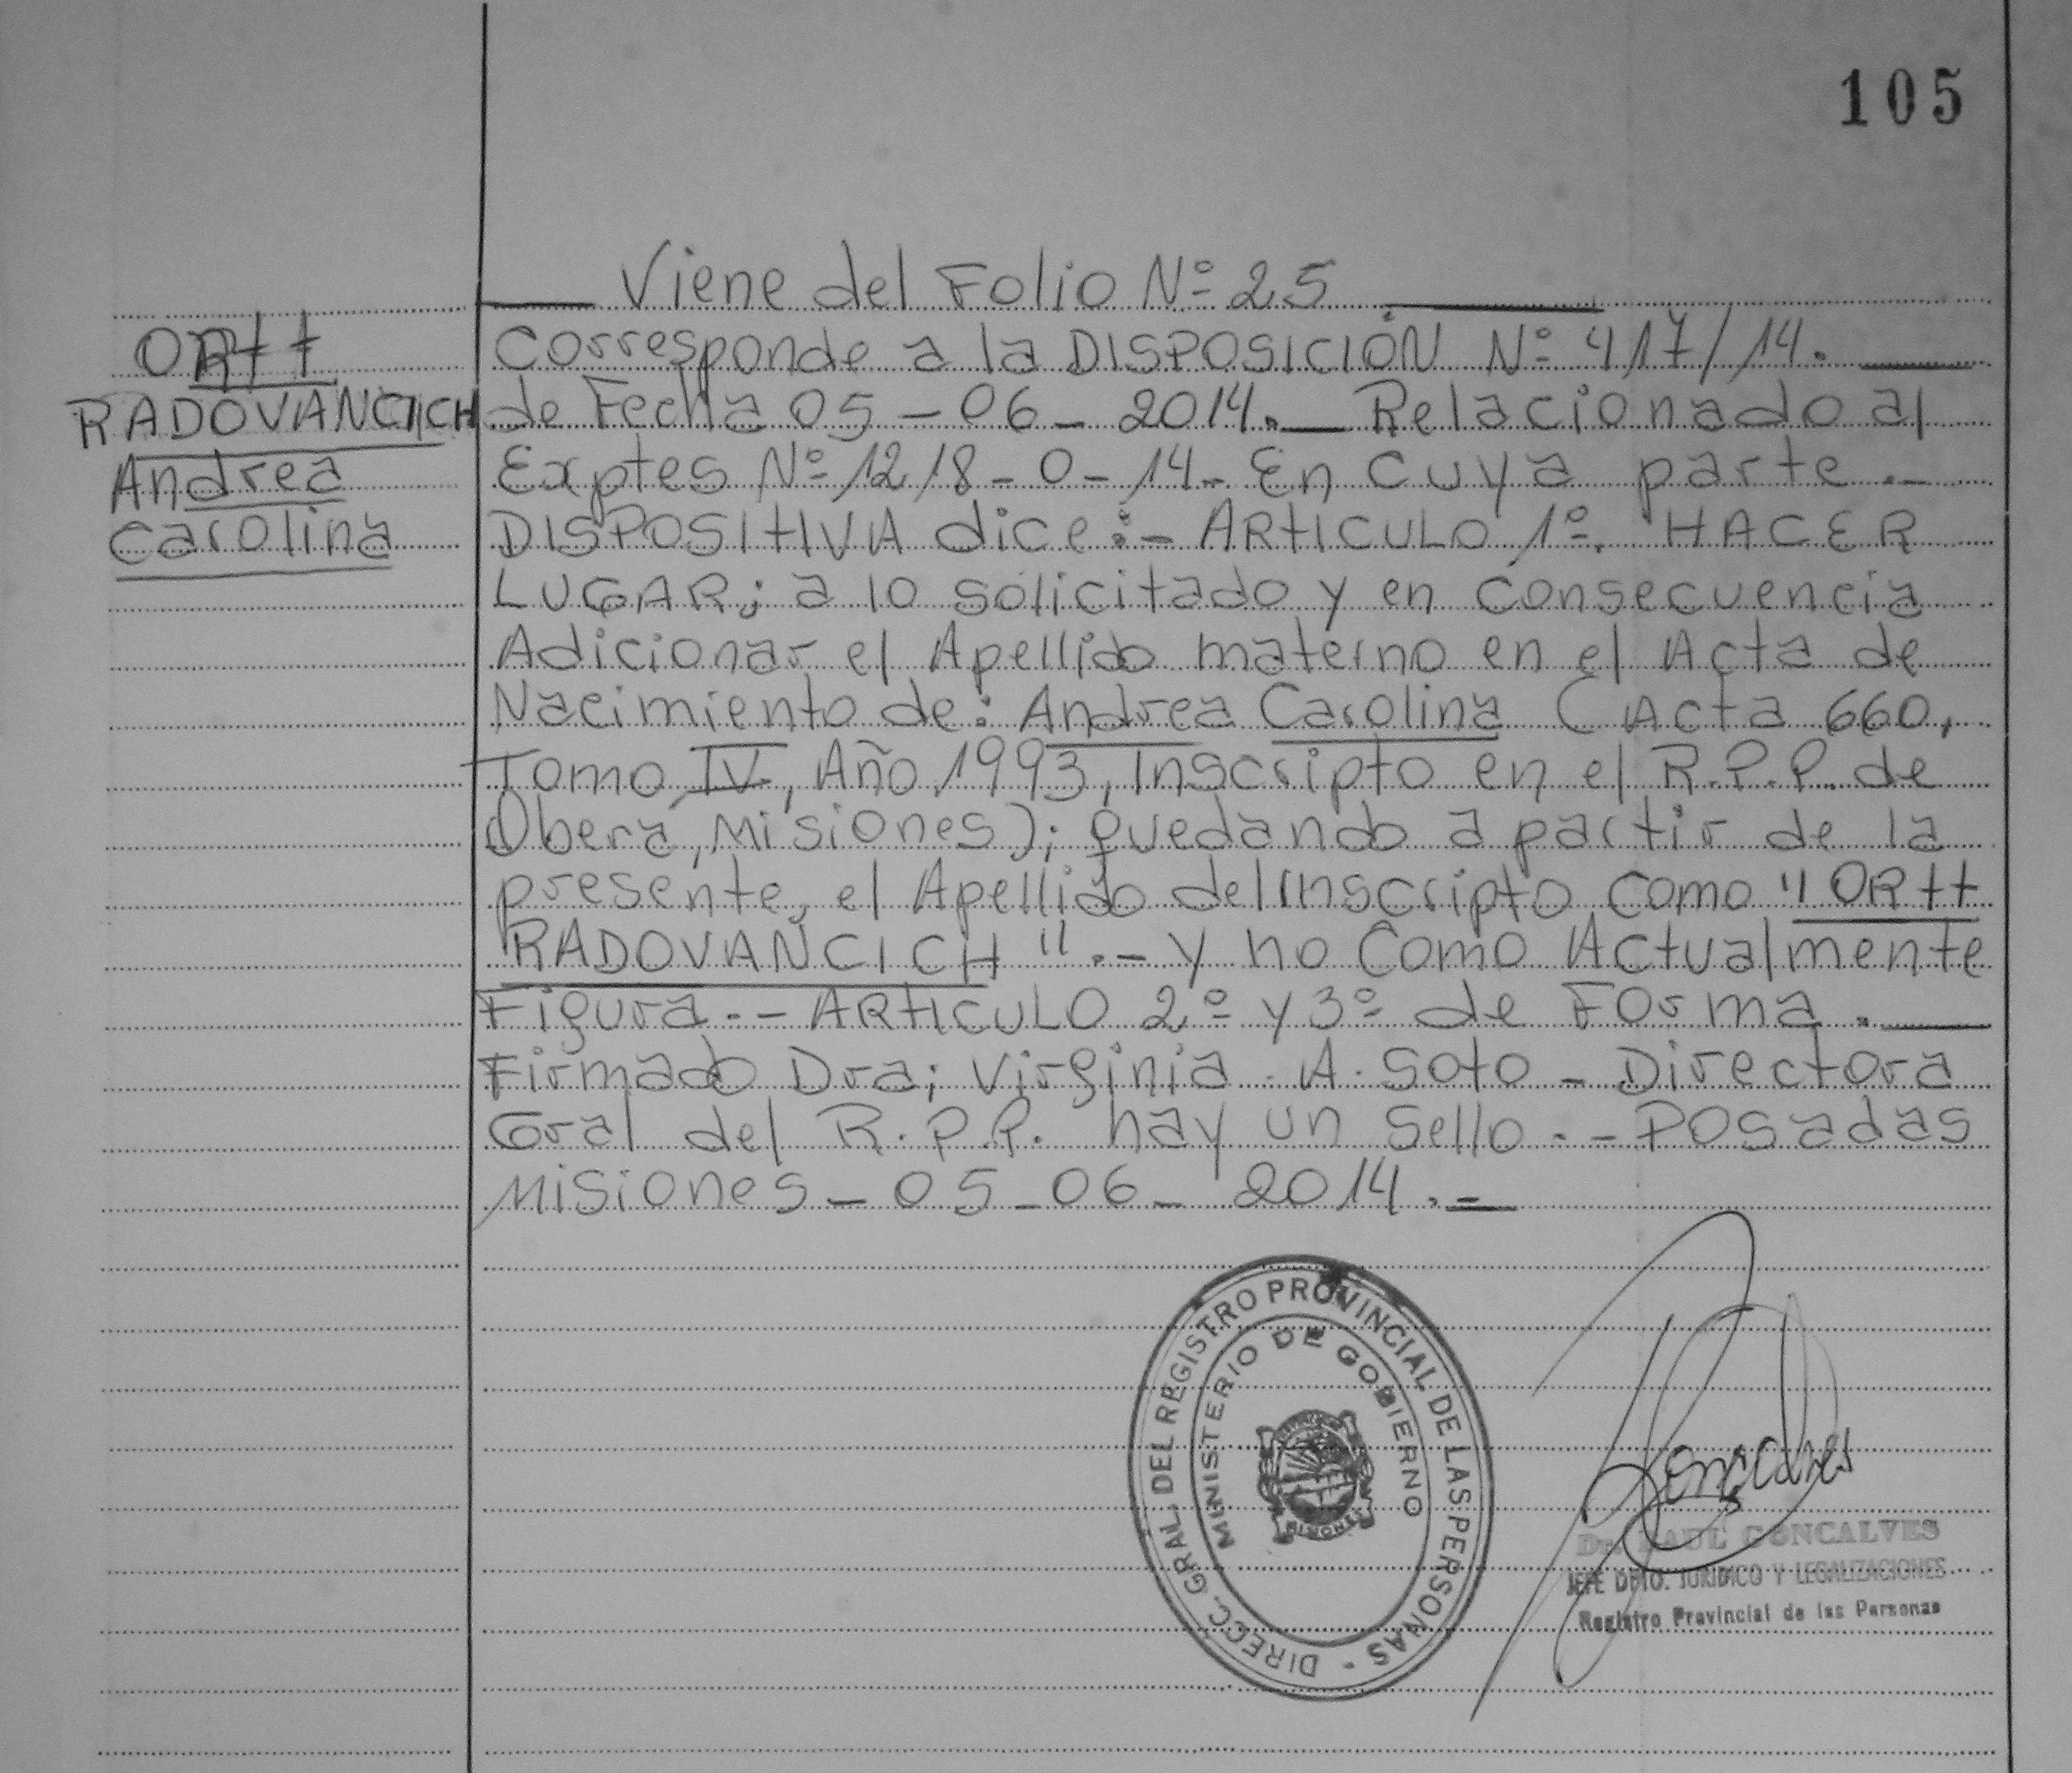 105
Viene del Folio Nº 25
ORtt
RADOVANCICH
Andrea
Carolina
Corresponde a la DISPOSICIÓN Nº 417/14.
de Fecha 05-06-2014. Relacionado al
Exptes Nº 1218-0-14- En cuya parte .-
DISPOSITIVA dice:- ARTICULO 1º. HACER
LUGAR; a lo solicitado y en consecuencia
Adicionar el Apellido materno en el Acta de
Nacimiento de: Andrea Carolina (Acta 660,
Tomo IV, Año 1993, Inscripto en el R.P.P. de
Oberá, Misiones); quedando a partir de la
presente, el Apellido del inscripto como "ORtt
RADOVANCICH".- y no como Actualmente
Figura.- ARTICULO 2º y 3º de Forma.
Firmado Dra; Virginia A. Soto - Directora
Gral del R.P.P. hay un sello.- Posadas
Misiones - 05-06-2014.=
DIRECC. GRAL. DEL REGISTRO PROVINCIAL DE LAS PERSONAS -
MINISTERIO DE GOBIERNO
MISIONES
Goncalves
Dr. RAUL GONCALVES
JEFE DPTO. JURIDICO Y LEGALIZACIONES
Registro Provincial de las Personas